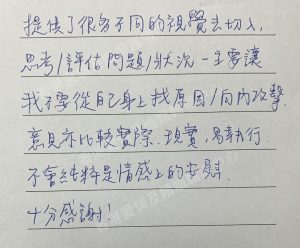 提供了很多不同的視覺去切入,
思考/評估問題/狀況-主要讓
我不要從自己身上找原因/向內攻擊.
意見亦比較實際、現實,易執行.
不會純粹是情感上的安慰.
十分感謝!